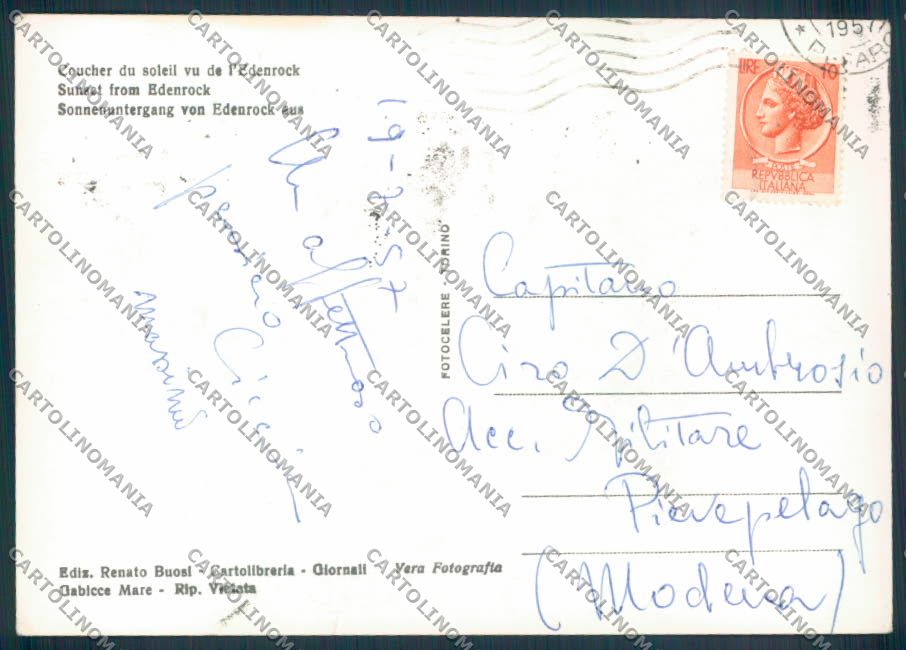 Coucher du soleil vu de l'Edenrock
Sunset from Edenrock
Sonnenuntergang von Edenrock aus
19-7-57
Un affettuoso
pensiero
1957
LIRE 10
POSTE
REPVBBLICA
ITALIANA
FOTOCELERE - TORINO
Capitano
Ciro D'Ambrosio
Acc. Militare
Pievepelago
(Modena)
Ediz. Renato Buosi - Cartolibreria - Giornali Vera Fotografia
Gabicce Mare - Rip. Vietata
CARTOLINOMANIA